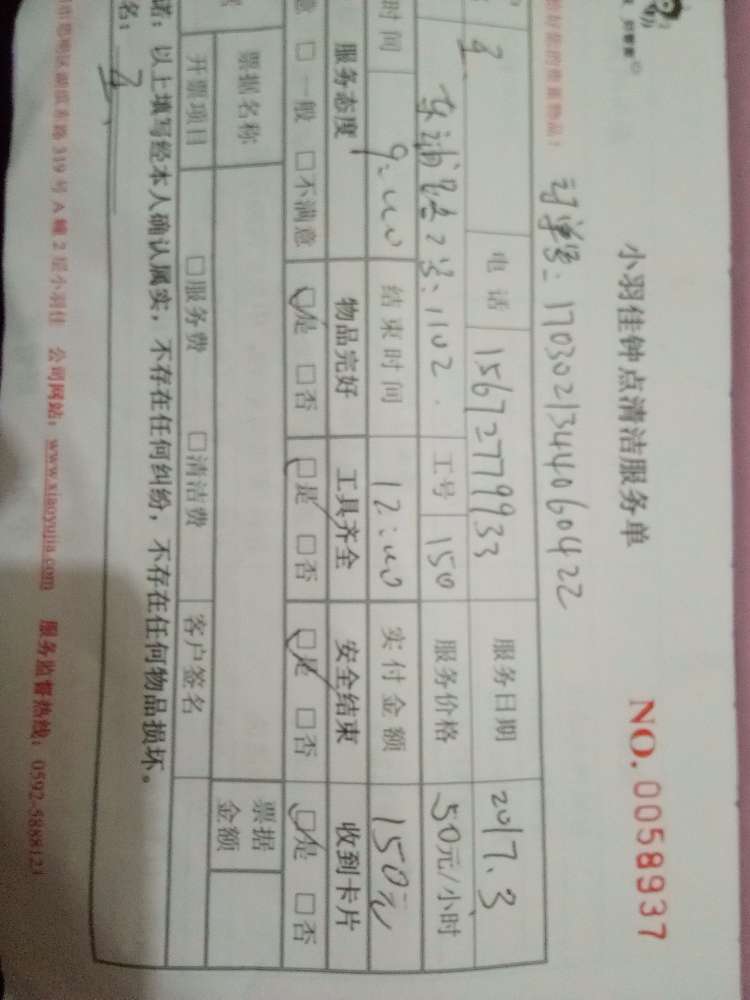 小羽佳钟点清洁服务单
NO. 0058937
好您的贵重物品!
订单号: 1703021344060422
电话 15672779933 服务日期 2017.3
1102. 工号 150 服务价格 50元/小时
时间 9:00 结束时间 12:00 实付金额 150元
服务态度 物品完好 工具齐全 安全结束 收到卡片
意 □一般 □不满意 □是 □否 □是 □否 □是 □否 □是 □否
票据名称 票据金额
开票项目 □服务费 □清洁费 客户签名
诺：以上填写经本人确认属实，不存在任何纠纷，不存在任何物品损坏。
名：
路 319 号 A 幢 2 层小羽佳 公司网站：www.xiaoyujia.com 服务监督热线：0592-5888123